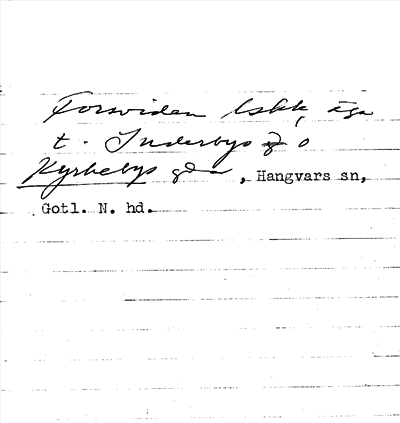 Forsviden lskk, äga
t. Inderbys o
Kyrkebys gda, Hangvars sn,
Gotl. N. hd.